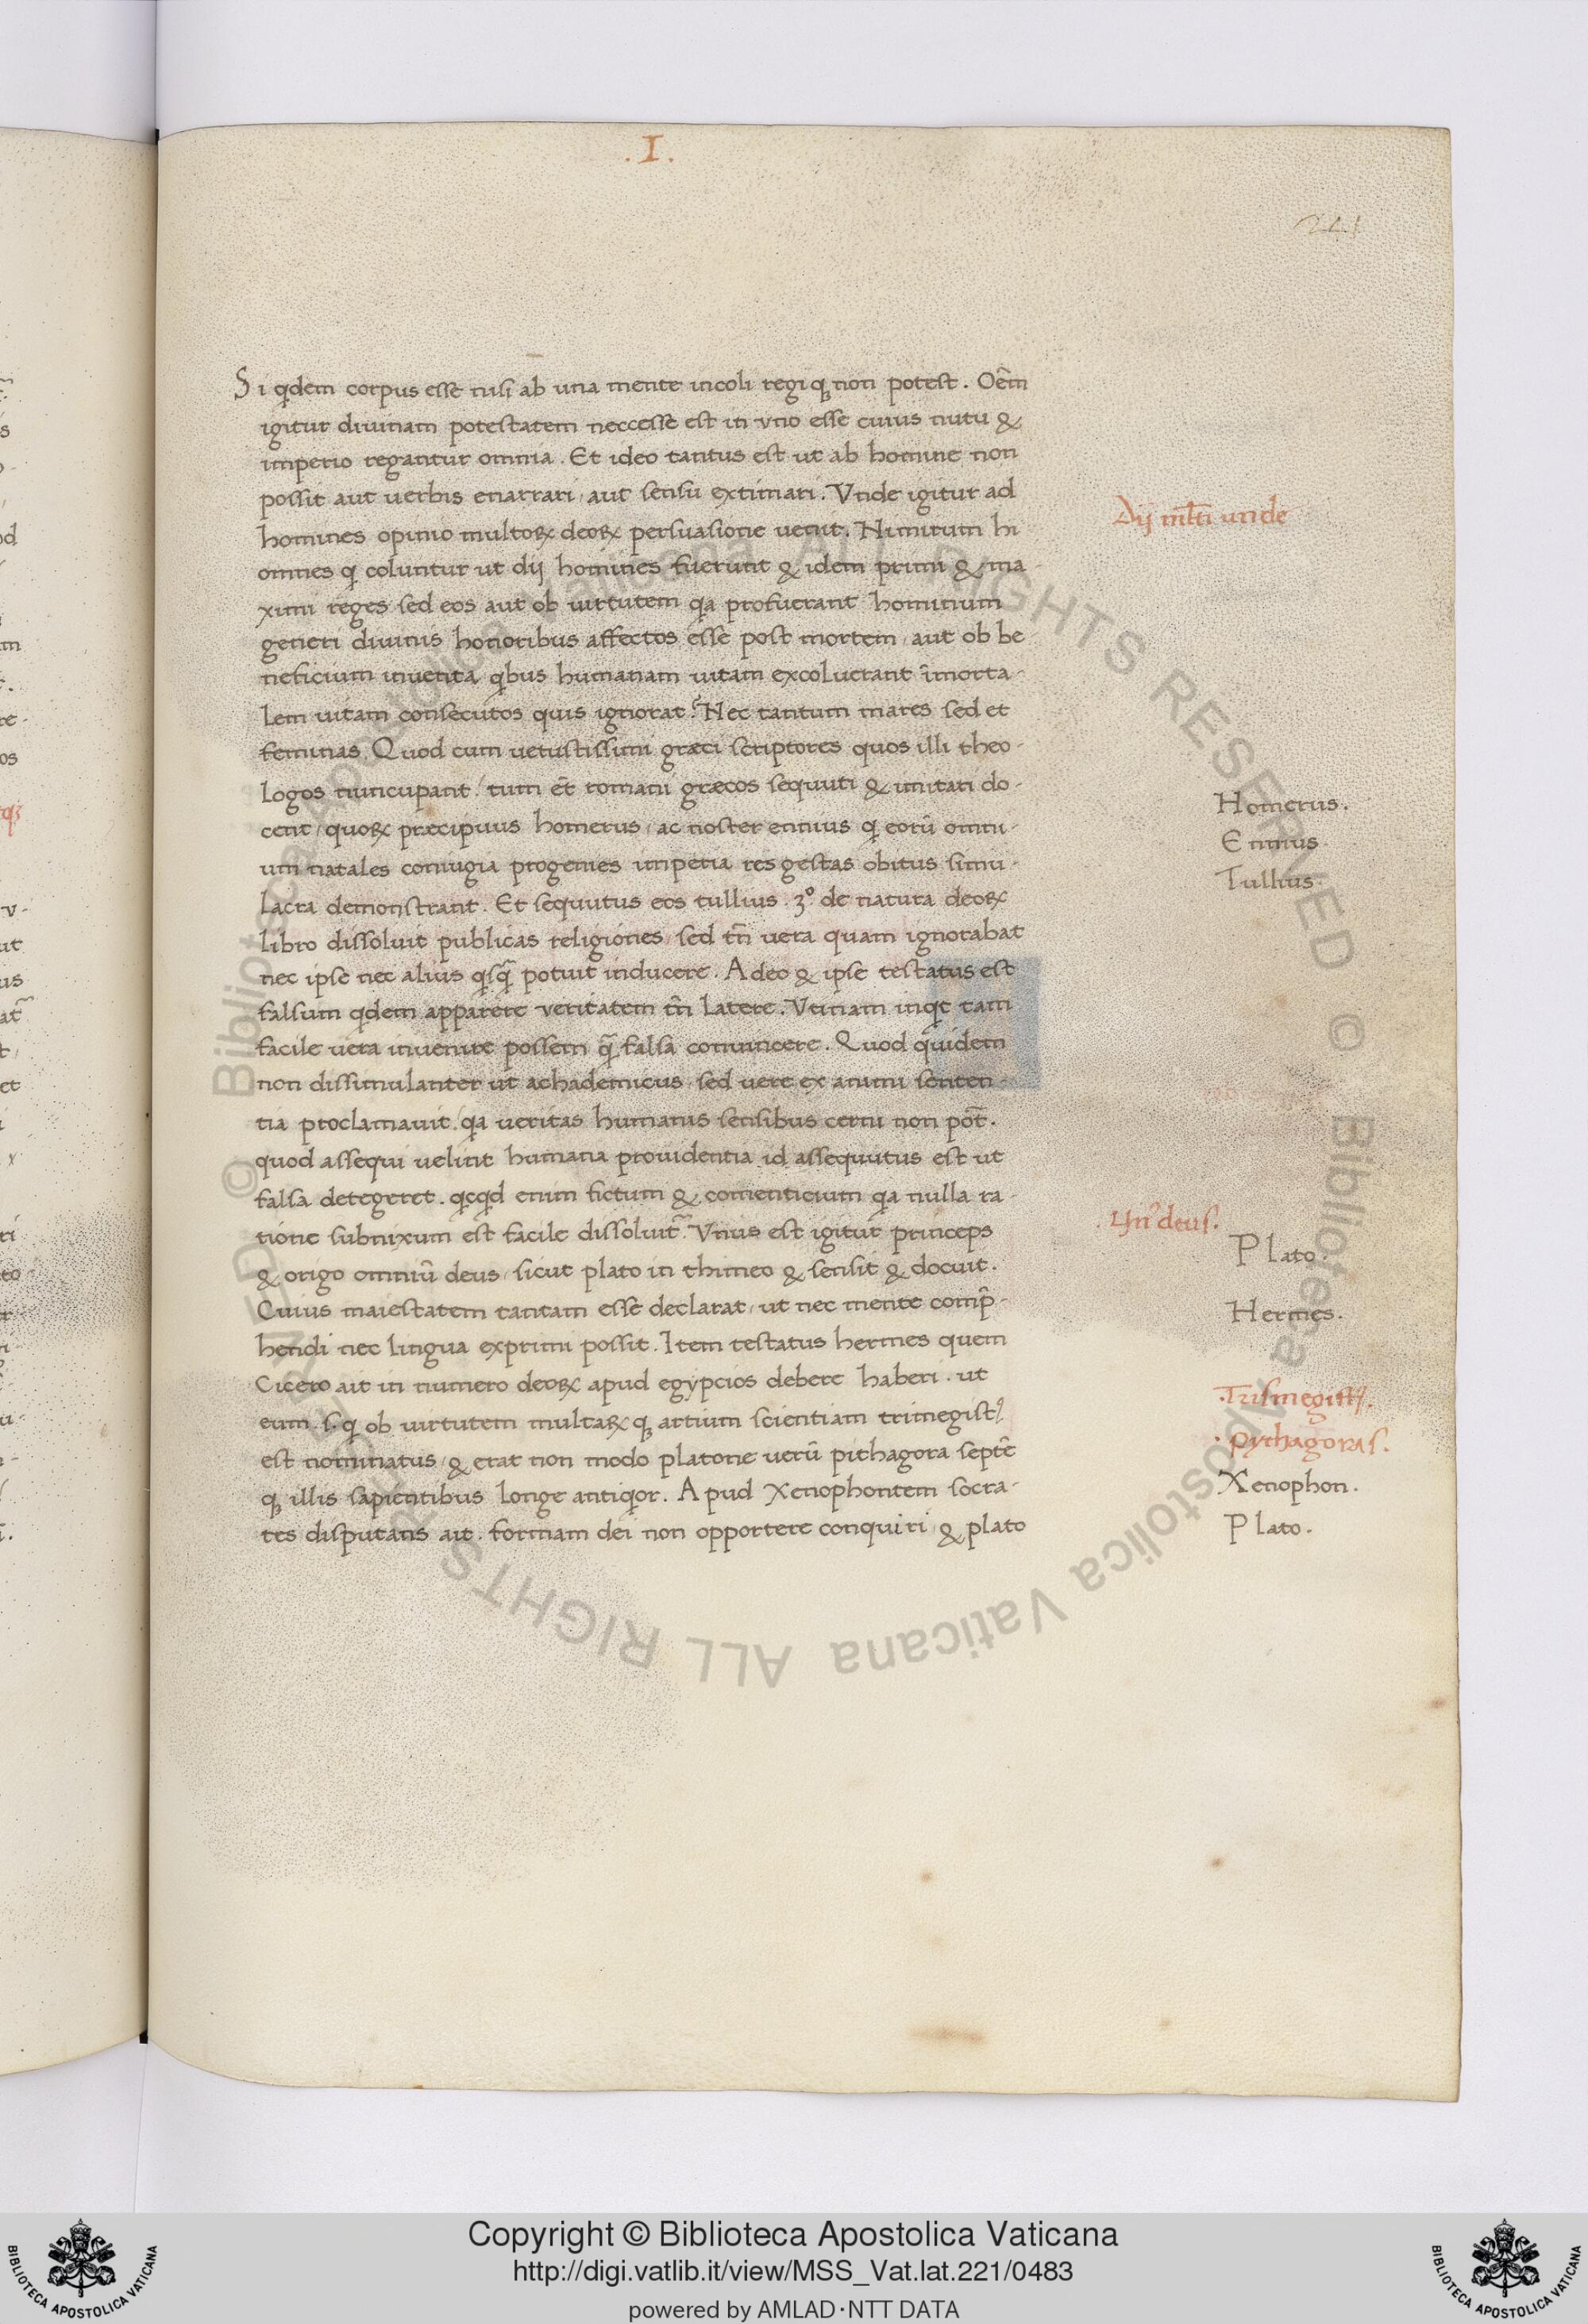 .I.
241
Si qdem corpus esse nisi ab una mente incoli regi qꝫ non potest. Oēm
igitur diuinam potestatem neccesse est in vno esse cuius nutu &
imperio regantur omnia. Et ideo tantus est ut ab homine non
possit aut uerbis enarrari, aut sensu extimari. Vnde igitur ad
Dij ml̄ti unde
homines opinio multoꝝ deoꝝ persuasione uenit. Nimirum hi
omnes q coluntur ut dij homines fuerunt & idem primi & ma-
ximi reges sed eos aut ob uirtutem qa profuerant hominum
generi diuinis honoribus affectos esse post mortem, aut ob be
neficium inuenta qbus humanam uitam excoluerant īmorta-
lem uitam consecutos quis ignorat? Nec tantum mares sed et
feminas. Quod cum uetustissimi græci scriptores quos illi theo-
logos nuncupant, tum et̄ romani græcos sequuti & imitati do-
Homerus.
cent, quoꝝ præcipuus homerus, ac noster ennius q eorū omni-
Ennius.
um natales coniugia progenies imperia res gestas obitus simu-
Tullius.
lacra demonstrant. Et sequutus eos tullius .3º. de natura deoꝝ
libro dissoluit publicas religiones, sed tn̄ uera quam ignorabat
nec ipse nec alius qsq̄ potuit inducere. Adeo & ipse testatus est
falsum qdem apparere veritatem tn̄ latere. Vtinam inqt tam
facile uera inuenire possem q̄ falsa conuincere. Quod quidem
non dissimulanter ut achademicus, sed uere ex animi senten-
tia proclamauit, qa ueritas humanis sensibus cerni non pōt.
quod assequi uelint humana prouidentia id assequutus est ut
falsa detegeret. qcqd enim fictum & comenticium qa nulla ra-
tione subnixum est facile dissoluit᷑. Vnus est igitur princeps
Vnꝰ deus.
& origo omniū deus, sicut plato in thimeo & sensit & docuit.
Plato.
Cuius maiestatem tantam esse declarat, ut nec mente comp̄-
Hermes.
hendi nec lingua exprimi possit. Item testatus hermes quem
Cicero ait in numero deoꝝ apud egypcios debere haberi. ut
Trismegistꝰ.
eum .s. q ob uirtutem multaꝝ qꝫ artium scientiam trimegistꝰ
pythagoras.
est nominatus, & erat non modo platone uerū pithagora septē
qꝫ illis sapientibus longe antiqor. Apud Xenophontem socra-
Xenophon.
tes disputans ait. formam dei non opportere conquiri, & plato
Plato.
© Biblioteca Apostolica Vaticana ALL RIGHTS RESERVED © Biblioteca Apostolica Vaticana ALL RIGHTS RESERVED
BIBLIOTECA APOSTOLICA VATICANA
Copyright © Biblioteca Apostolica Vaticana
http://digi.vatlib.it/view/MSS_Vat.lat.221/0483
powered by AMLAD·NTT DATA
BIBLIOTECA APOSTOLICA VATICANA